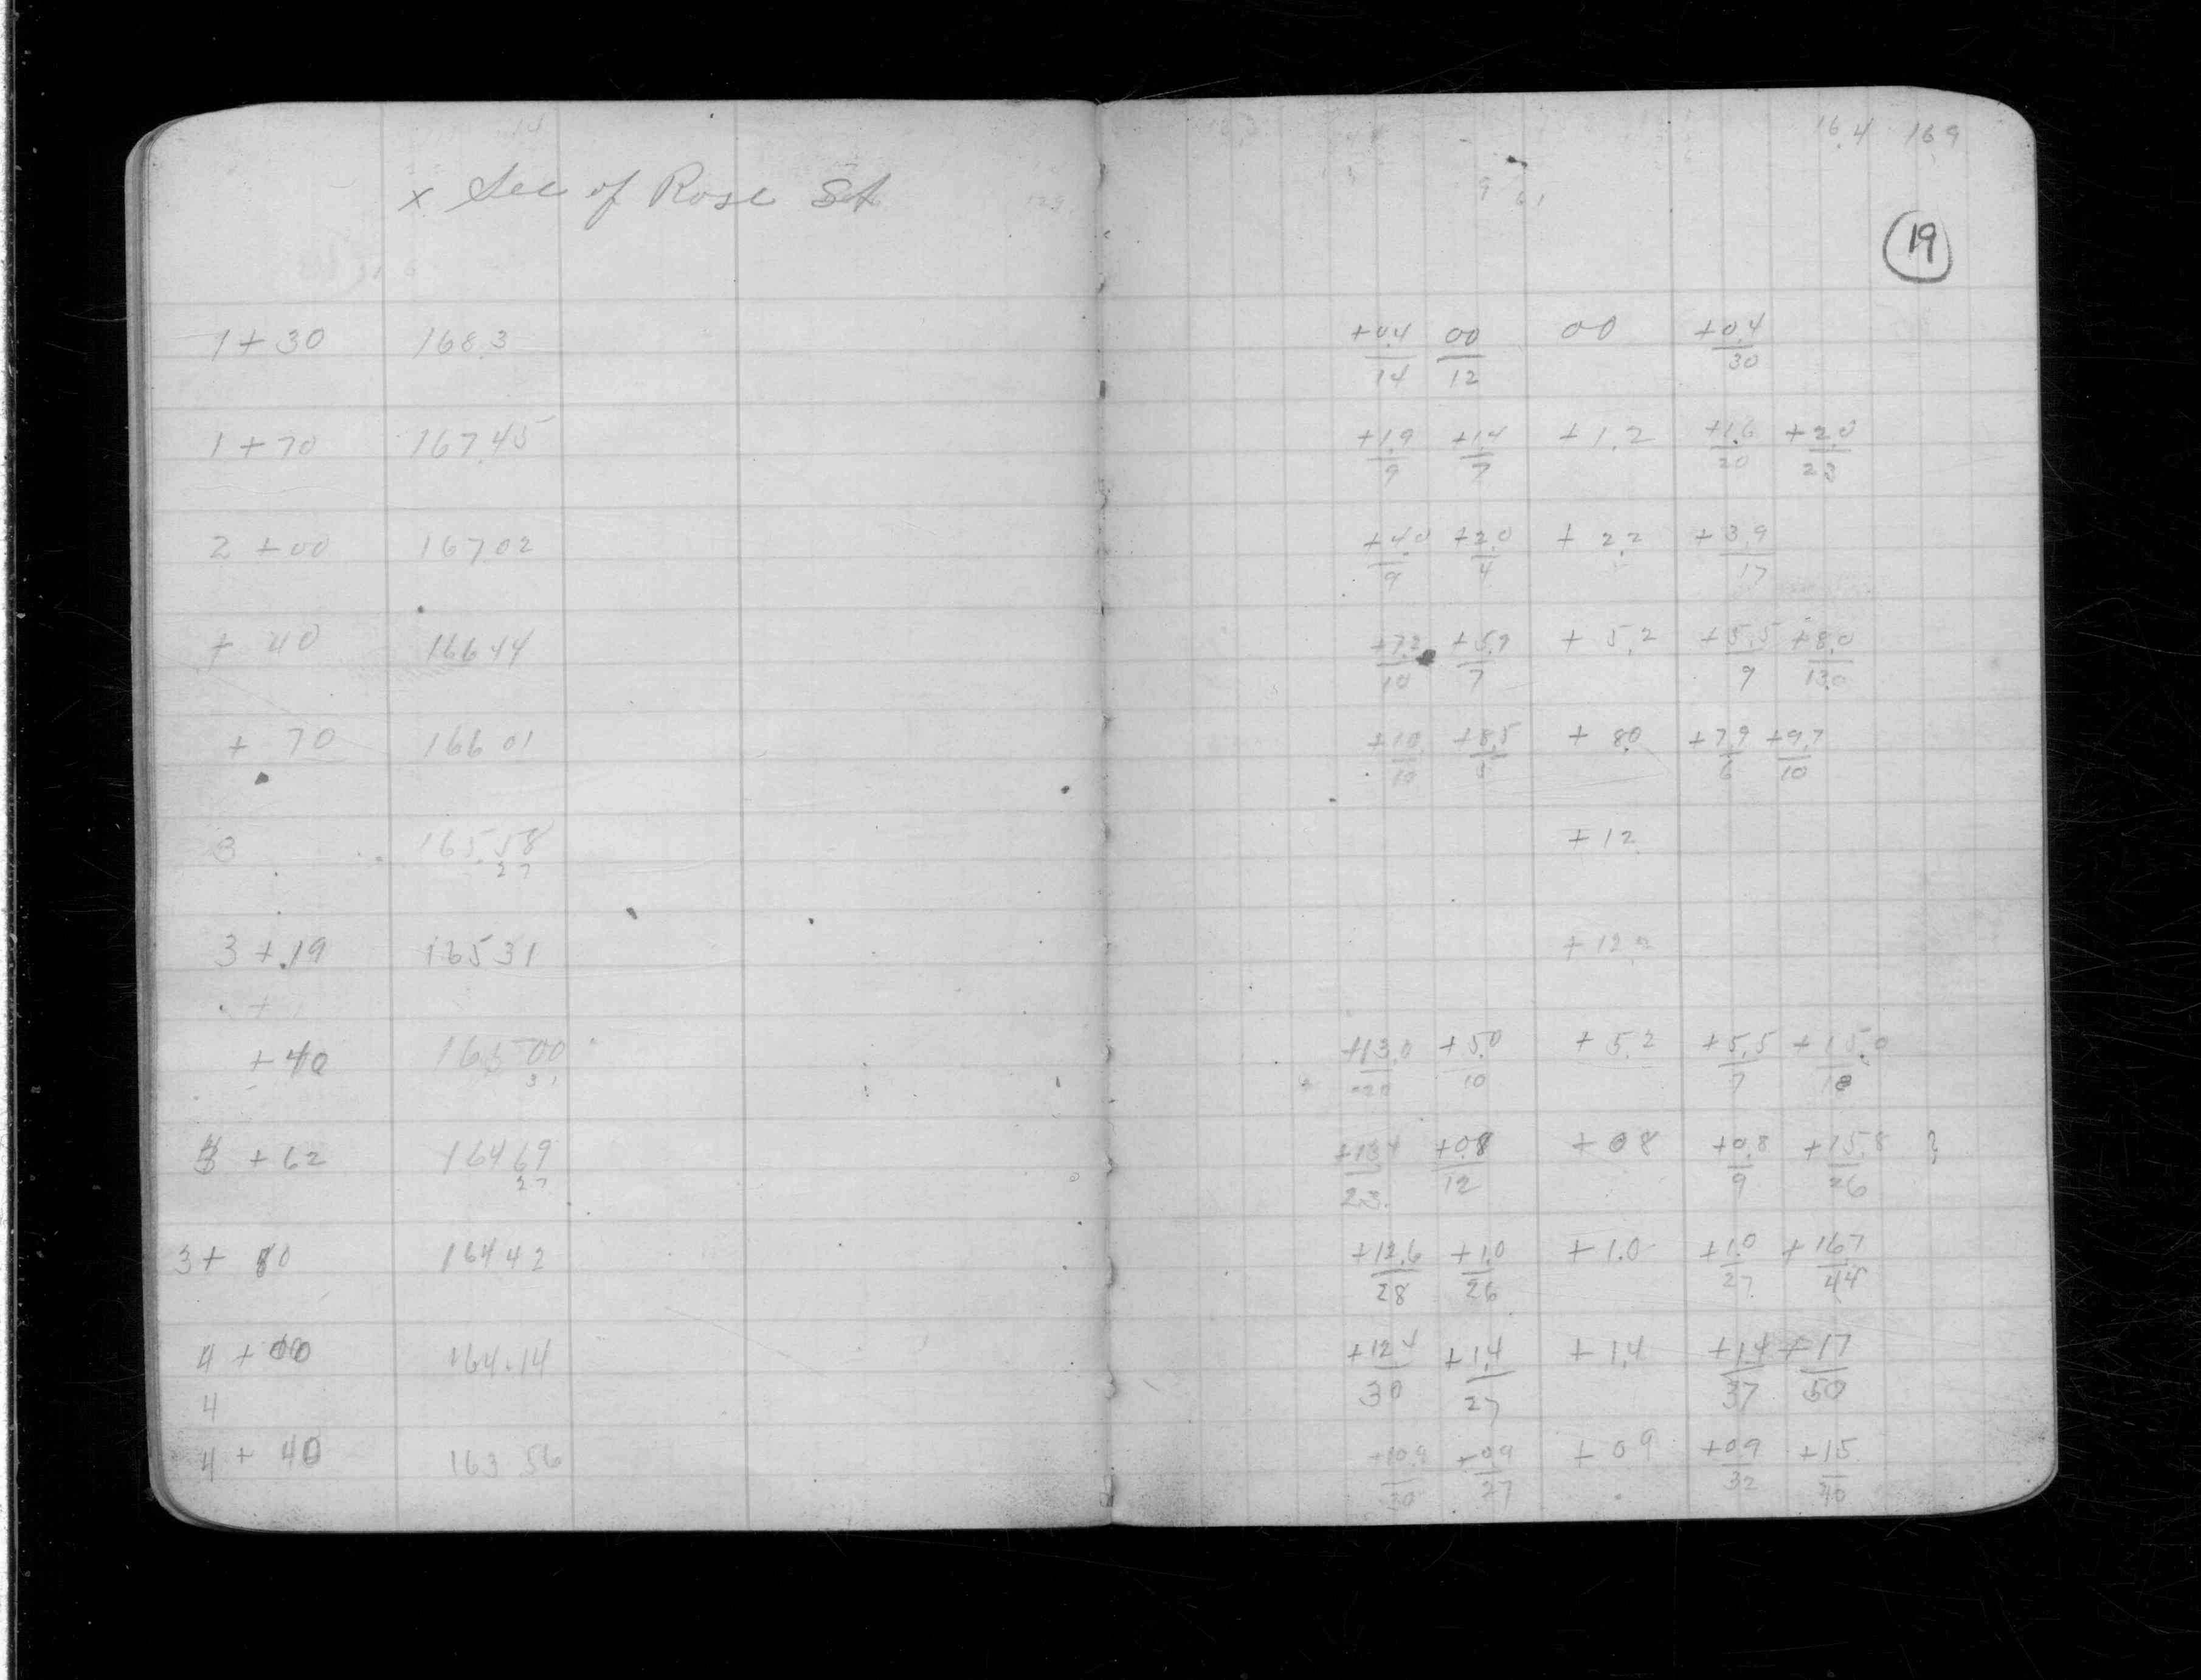 16.4 169
x Sec of Rose St
19
1+30 168.3 +0.4/14 00/12 00 +0.4/30
1+70 167.45 +1.9/9 +1.4/7 +1.2 +1.6/20 +2.0/23
2+00 167.02 +4.0/9 +2.0/4 +2.2 +3.9/17
+40 166 44 +7.2/10 +5.9/7 +5.2 +5.5/9 +8.0/130
+70 166 01 +10/10 +8.5 +8.0 +7.9/6 +9.7/10
3 165.58 +12
27
3+.19 165 31 +12.2
+40 165 00 +13.0/20 +5.0/10 +5.2 +5.5/7 +15.0/18
31
3+62 164 69 +13.4/23 +0.8/12 +0 8 +0.8/9 +15.8/26 ?
27
3+80 164 42 +12.6/28 +1.0/26 +1.0 +1.0/27 +16.7/44
4+00 164.14 +12.4/30 +1.4/27 +1.4 +1.4/37 +17/50
4
4+40 163 56 +10.9/30 +0.9/27 +0 9 +0.9/32 +15/40